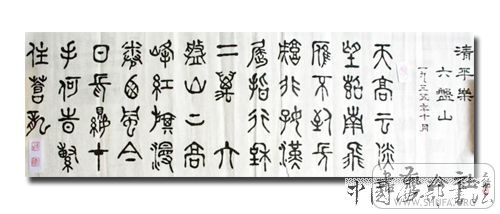 清平樂
六盤山
一九三五年十月
天高云淡
望斷南飛
雁不到長
城非好漢
屈指行程
二萬六
盤山上高
峰紅旗漫
卷西風今
日長纓在
手何時縛
住蒼龍
WWW.SHUFA.ORG